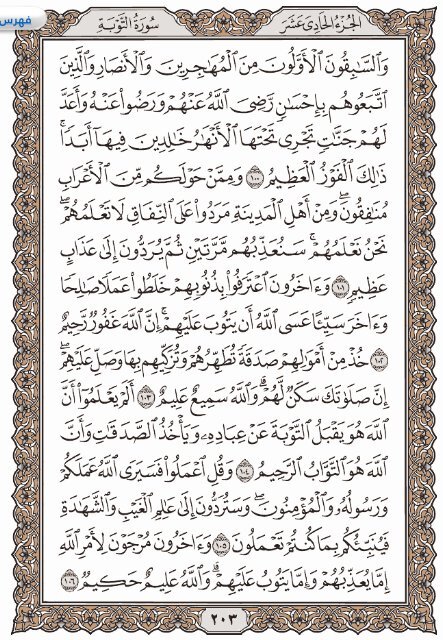 فهرس
الجزء الحادي عشر
سورة التوبة
وَٱلسَّٰبِقُونَ ٱلْأَوَّلُونَ مِنَ ٱلْمُهَٰجِرِينَ وَٱلْأَنصَارِ وَٱلَّذِينَ
ٱتَّبَعُوهُم بِإِحْسَٰنٍ رَّضِىَ ٱللَّهُ عَنْهُمْ وَرَضُوا۟ عَنْهُ وَأَعَدَّ
لَهُمْ جَنَّٰتٍ تَجْرِى تَحْتَهَا ٱلْأَنْهَٰرُ خَٰلِدِينَ فِيهَآ أَبَدًا ۚ
ذَٰلِكَ ٱلْفَوْزُ ٱلْعَظِيمُ ١٠٠ وَمِمَّنْ حَوْلَكُم مِّنَ ٱلْأَعْرَابِ
مُنَٰفِقُونَ ۖ وَمِنْ أَهْلِ ٱلْمَدِينَةِ مَرَدُوا۟ عَلَى ٱلنِّفَاقِ لَا تَعْلَمُهُمْ ۖ
نَحْنُ نَعْلَمُهُمْ ۚ سَنُعَذِّبُهُم مَّرَّتَيْنِ ثُمَّ يُرَدُّونَ إِلَىٰ عَذَابٍ
عَظِيمٍ ١٠١ وَءَاخَرُونَ ٱعْتَرَفُوا۟ بِذُنُوبِهِمْ خَلَطُوا۟ عَمَلًا صَٰلِحًا
وَءَاخَرَ سَيِّئًا عَسَى ٱللَّهُ أَن يَتُوبَ عَلَيْهِمْ ۚ إِنَّ ٱللَّهَ غَفُورٌ رَّحِيمٌ
١٠٢ خُذْ مِنْ أَمْوَٰلِهِمْ صَدَقَةً تُطَهِّرُهُمْ وَتُزَكِّيهِم بِهَا وَصَلِّ عَلَيْهِمْ ۖ
إِنَّ صَلَوٰتَكَ سَكَنٌ لَّهُمْ ۗ وَٱللَّهُ سَمِيعٌ عَلِيمٌ ١٠٣ أَلَمْ يَعْلَمُوٓا۟ أَنَّ
ٱللَّهَ هُوَ يَقْبَلُ ٱلتَّوْبَةَ عَنْ عِبَادِهِۦ وَيَأْخُذُ ٱلصَّدَقَٰتِ وَأَنَّ
ٱللَّهَ هُوَ ٱلتَّوَّابُ ٱلرَّحِيمُ ١٠٤ وَقُلِ ٱعْمَلُوا۟ فَسَيَرَى ٱللَّهُ عَمَلَكُمْ
وَرَسُولُهُۥ وَٱلْمُؤْمِنُونَ ۖ وَسَتُرَدُّونَ إِلَىٰ عَٰلِمِ ٱلْغَيْبِ وَٱلشَّهَٰدَةِ
فَيُنَبِّئُكُم بِمَا كُنتُمْ تَعْمَلُونَ ١٠٥ وَءَاخَرُونَ مُرْجَوْنَ لِأَمْرِ ٱللَّهِ
إِمَّا يُعَذِّبُهُمْ وَإِمَّا يَتُوبُ عَلَيْهِمْ ۗ وَٱللَّهُ عَلِيمٌ حَكِيمٌ ١٠٦
٢٠٣